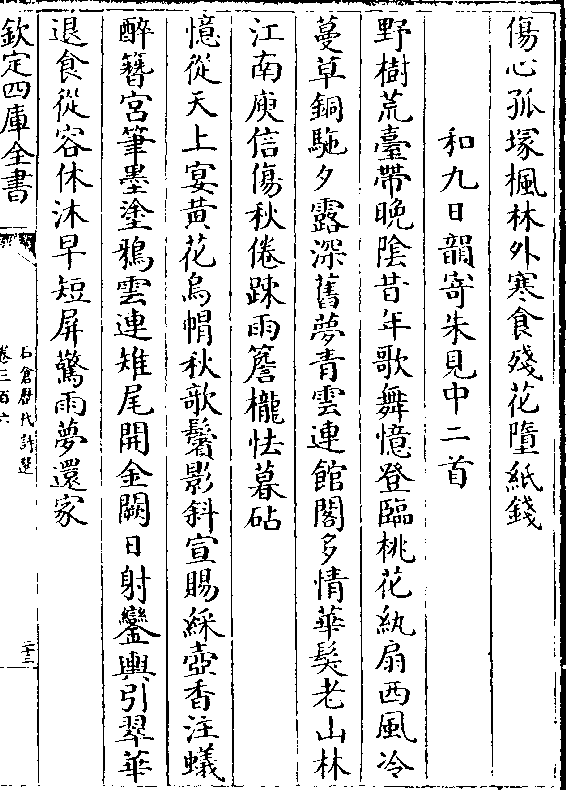 傷心孤塚楓林外寒食殘花墮紙錢
和九日韻寄朱見中二首
野樹荒臺帶晚陰昔年歌舞憶登臨桃花紈扇西風冷
蔓草銅駞夕露深舊夢青雲連館閣多情華髮老山林
江南庾信傷秋倦踈雨簷櫳怯暮砧
憶從天上宴黃花烏帽秋歌鬢影斜宣賜綵壺香注蟻
醉簪宮筆墨塗鴉雲連雉尾開金闕日射鑾輿引翠華
退食從容休沐早短屏驚雨夢還家
欽定四庫全書
石倉歷代詩選
卷三百六
二十三